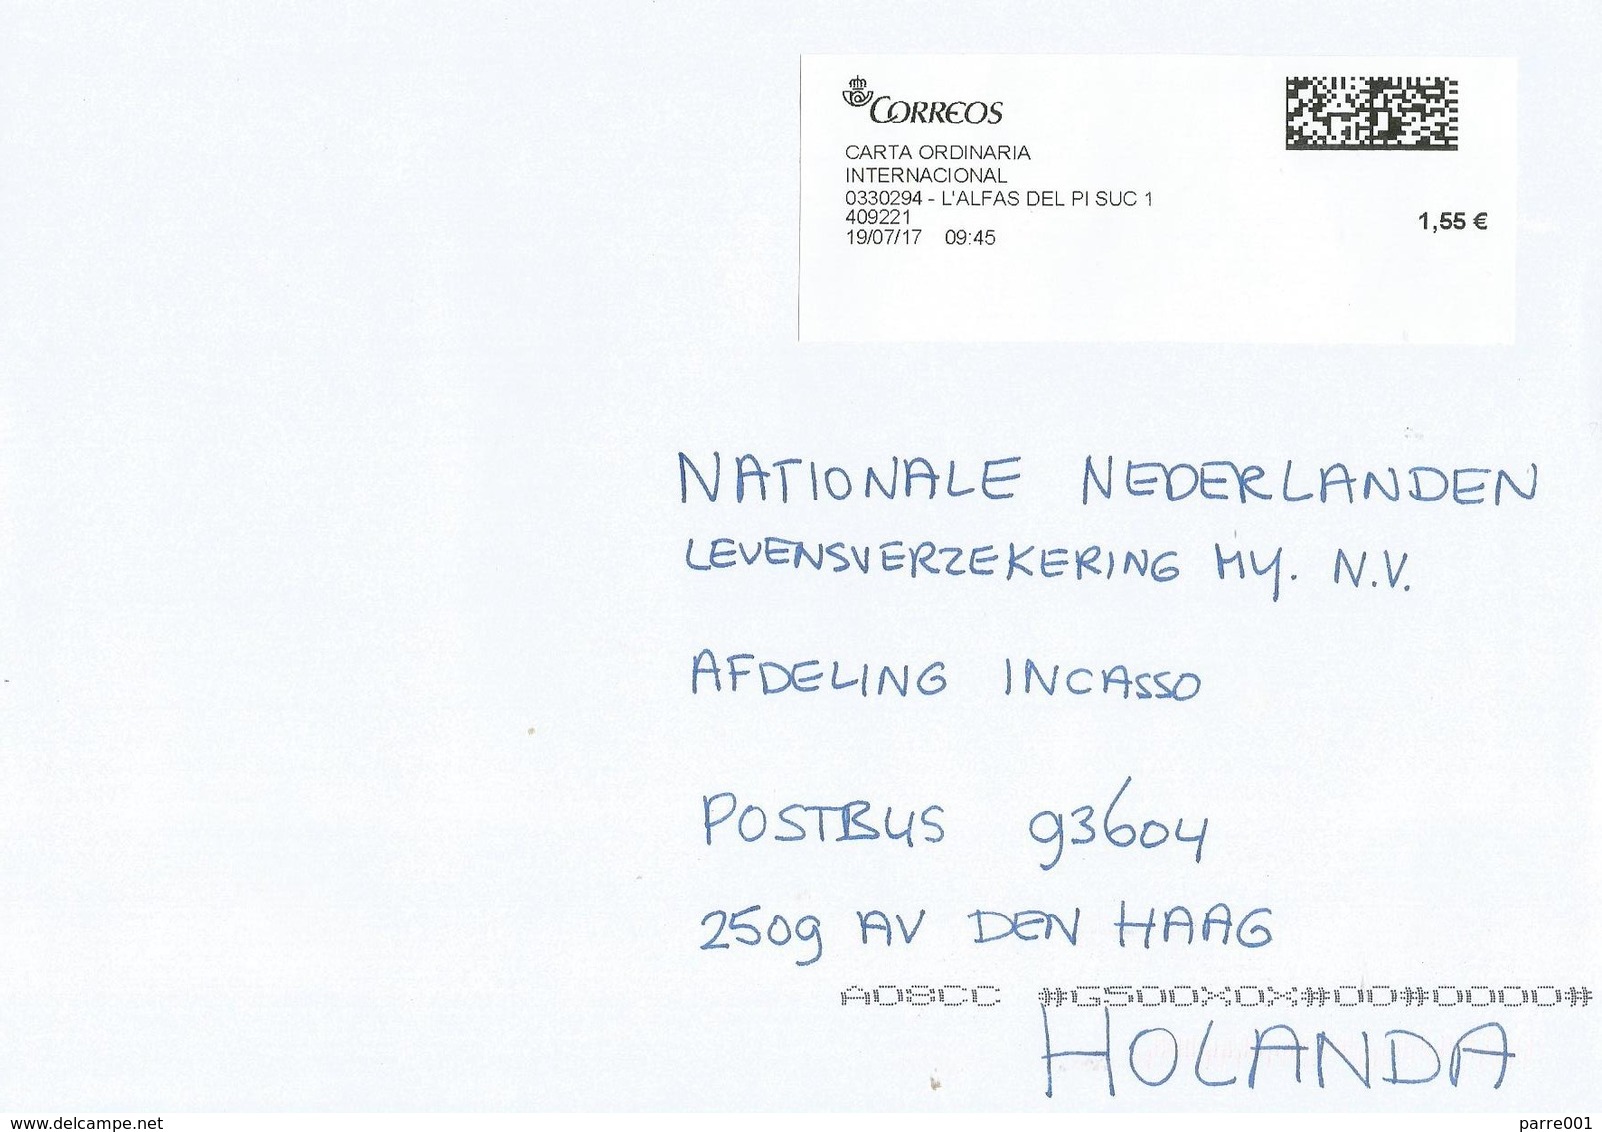 CORREOS
CARTA ORDINARIA
INTERNACIONAL
0330294 - L'ALFAS DEL PI SUC 1
409221
1,55 €
19/07/17 09:45
NATIONALE NEDERLANDEN
LEVENSVERZEKERING MY. N.V.
AFDELING INCASSO
POSTBUS 93604
2509 AV DEN HAAG
A08CC #G500X0X#00#0000#
HOLANDA
www.delcampe.net
parre001